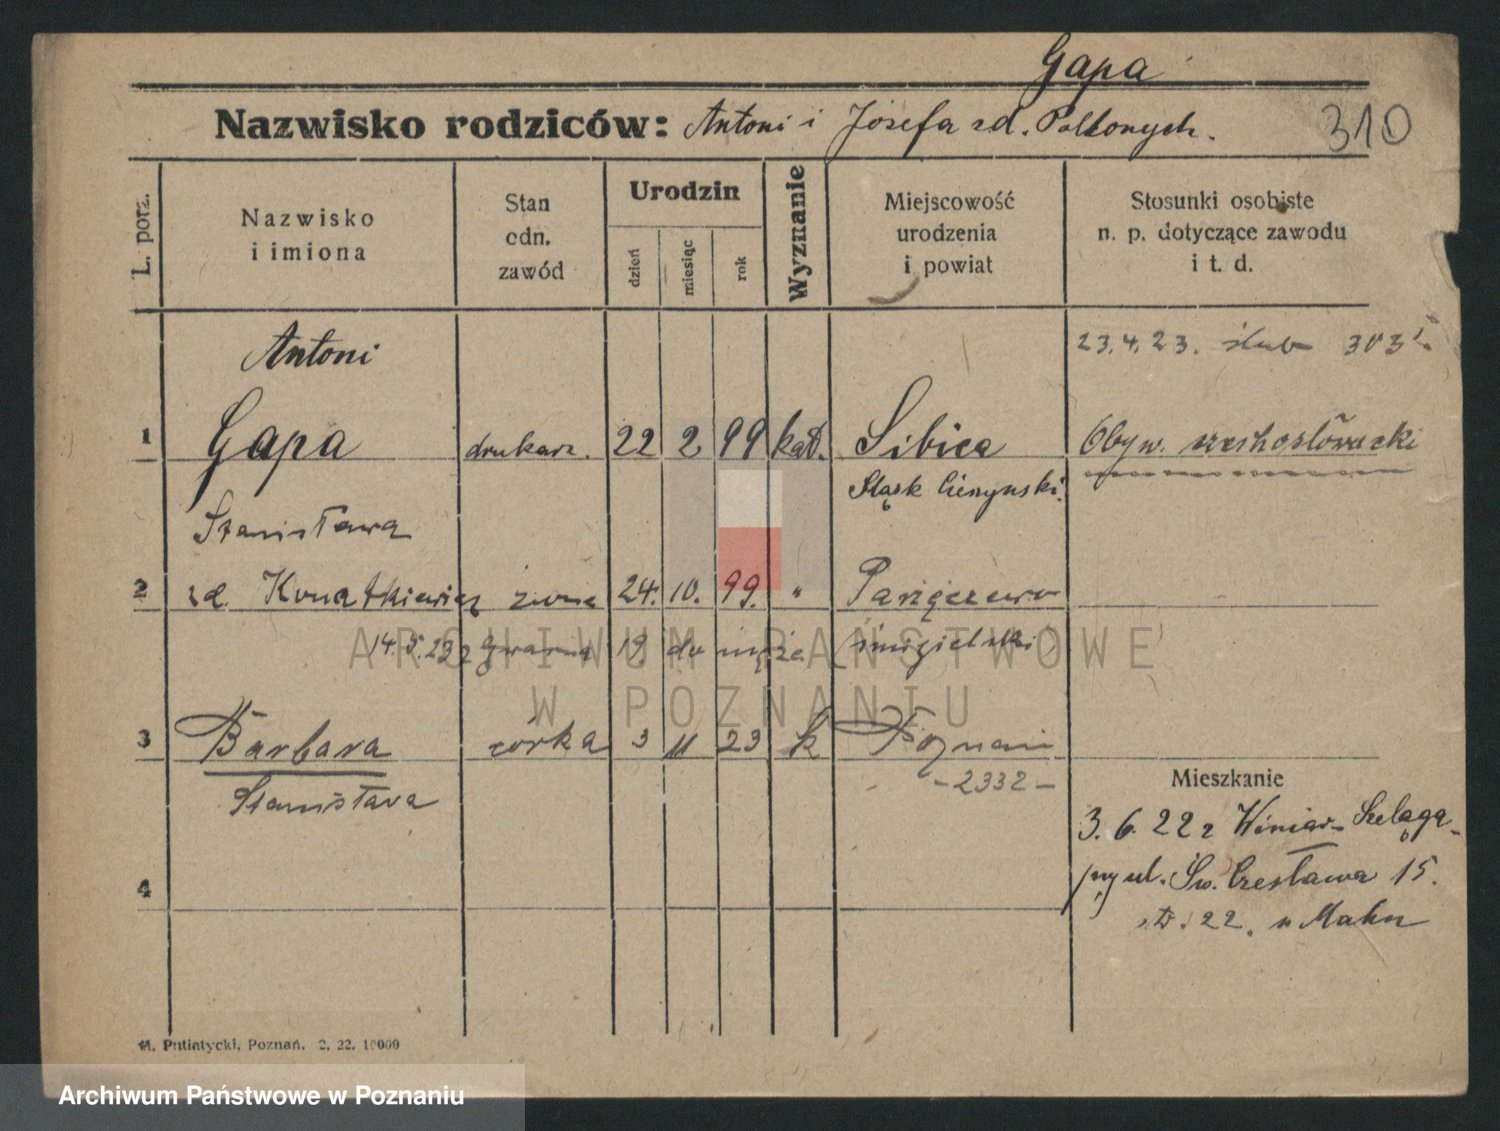 Gapa
Nazwisko rodziców: Antoni i Józefa zd. Polkonych.
310
L. porz.
Nazwisko i imiona
Stan odn. zawód
Urodzin
dzień miesiąc rok
Wyznanie
Miejscowość urodzenia i powiat
Stosunki osobiste n. p. dotyczące zawodu i t. d.
Antoni
23.4.23. ślub 303
1 Gapa drukarz. 22 2 99 kat. Sibica Obyw. czechosłowacki
Śląsk Cieszyński.
Stanisława
2 zd. Konatkiewicz żona 24. 10. 99. " Parzęczewo
14.5.23 z Gwarna 19. do męża śmigielski
3 Barbara córka 3 11 23 k Poznań
Stanisława
-2332-
Mieszkanie
3. 6. 22 z Winiar- Szeląga
przy ul. Św. Czesława 15.
4
22. u Mahn
M. Putiatycki, Poznań. 2. 22. 10000
ARCHIWUM PAŃSTWOWE
W POZNANIU
Archiwum Państwowe w Poznaniu